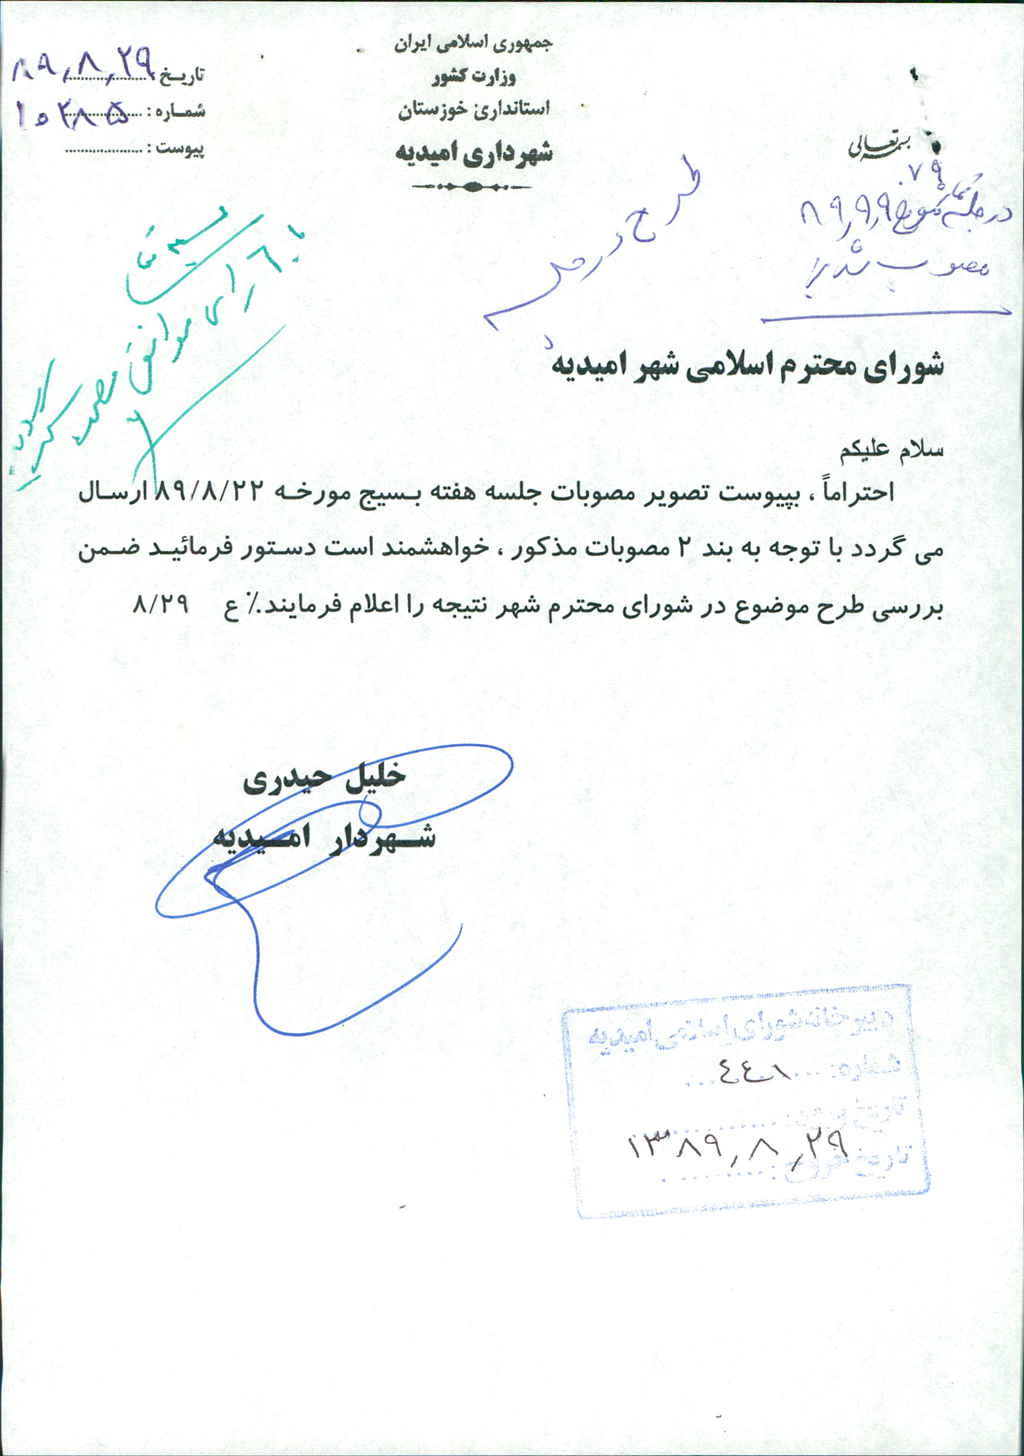 بسمه تعالی
جمهوری اسلامی ایران
وزارت کشور
استانداری خوزستان
شهرداری امیدیه
تاریخ : ۸۹٫۸٫۲۹
شماره : ۱۰۲۸۵
پیوست :
در جلسه
مصوب شد
طرح در جلسه
با ۶ رای موافق
شورای محترم اسلامی شهر امیدیه
سلام علیکم
احتراماً ، بپیوست تصویر مصوبات جلسه هفته بسیج مورخه ۸۹/۸/۲۲ ارسال
می گردد با توجه به بند ۲ مصوبات مذکور ، خواهشمند است دستور فرمائید ضمن
بررسی طرح موضوع در شورای محترم شهر نتیجه را اعلام فرمایند.٪ ع ۸/۲۹
خلیل حیدری
شهردار امیدیه
شماره:
تاریخ
۱۳۸۹٫۸٫۲۹
تاریخ خروج: